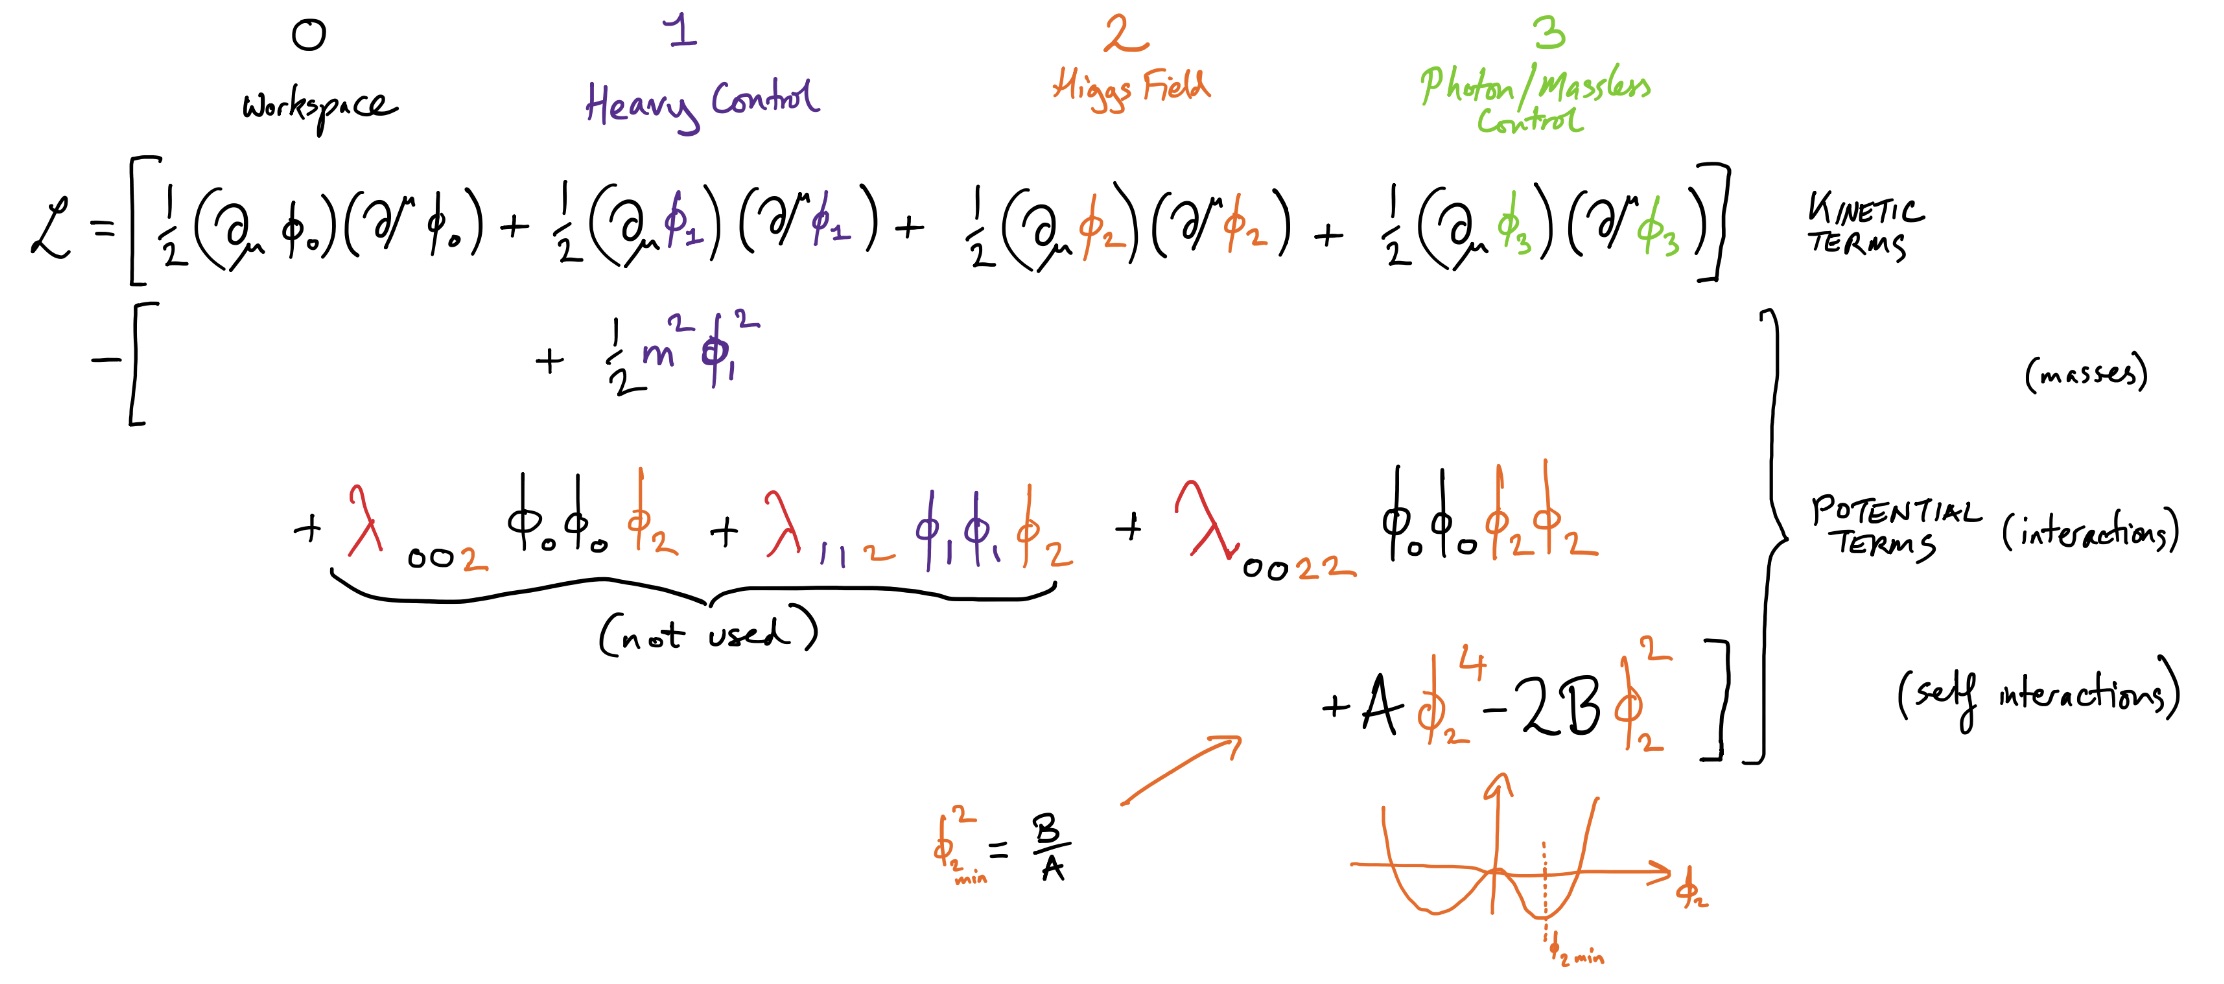 0 1 2 3
Workspace Heavy Control Higgs Field Photon/Massless Control
ℒ = [ ½(∂_μ ϕ₀)(∂^μ ϕ₀) + ½(∂_μ ϕ₁)(∂^μ ϕ₁) + ½(∂_μ ϕ₂)(∂^μ ϕ₂) + ½(∂_μ ϕ₃)(∂^μ ϕ₃) ] KINETIC TERMS
− [ + ½ m² ϕ₁² (masses)
+ λ₀₀₂ ϕ₀ϕ₀ϕ₂ + λ₁₁₂ ϕ₁ϕ₁ϕ₂ + λ₀₀₂₂ ϕ₀ϕ₀ϕ₂ϕ₂ POTENTIAL TERMS (interactions)
(not used)
+ A ϕ₂⁴ − 2B ϕ₂² ] (self interactions)
ϕ₂²_min = B/A
ϕ₂
ϕ₂ min